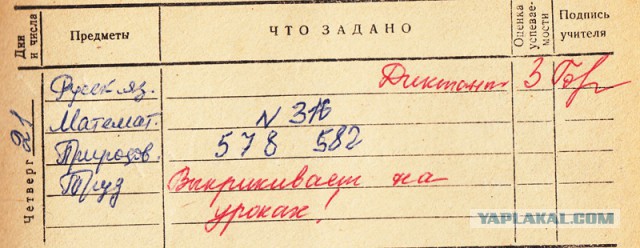 Дни и числа Предметы ЧТО ЗАДАНО Оценка успеваемости Подпись учителя
Четверг 21
Русск яз. Диктант 3
Математ. N 316
Природов. 578 582
Труд Выкрикивает на
уроках!
YAPLAKAL.COM